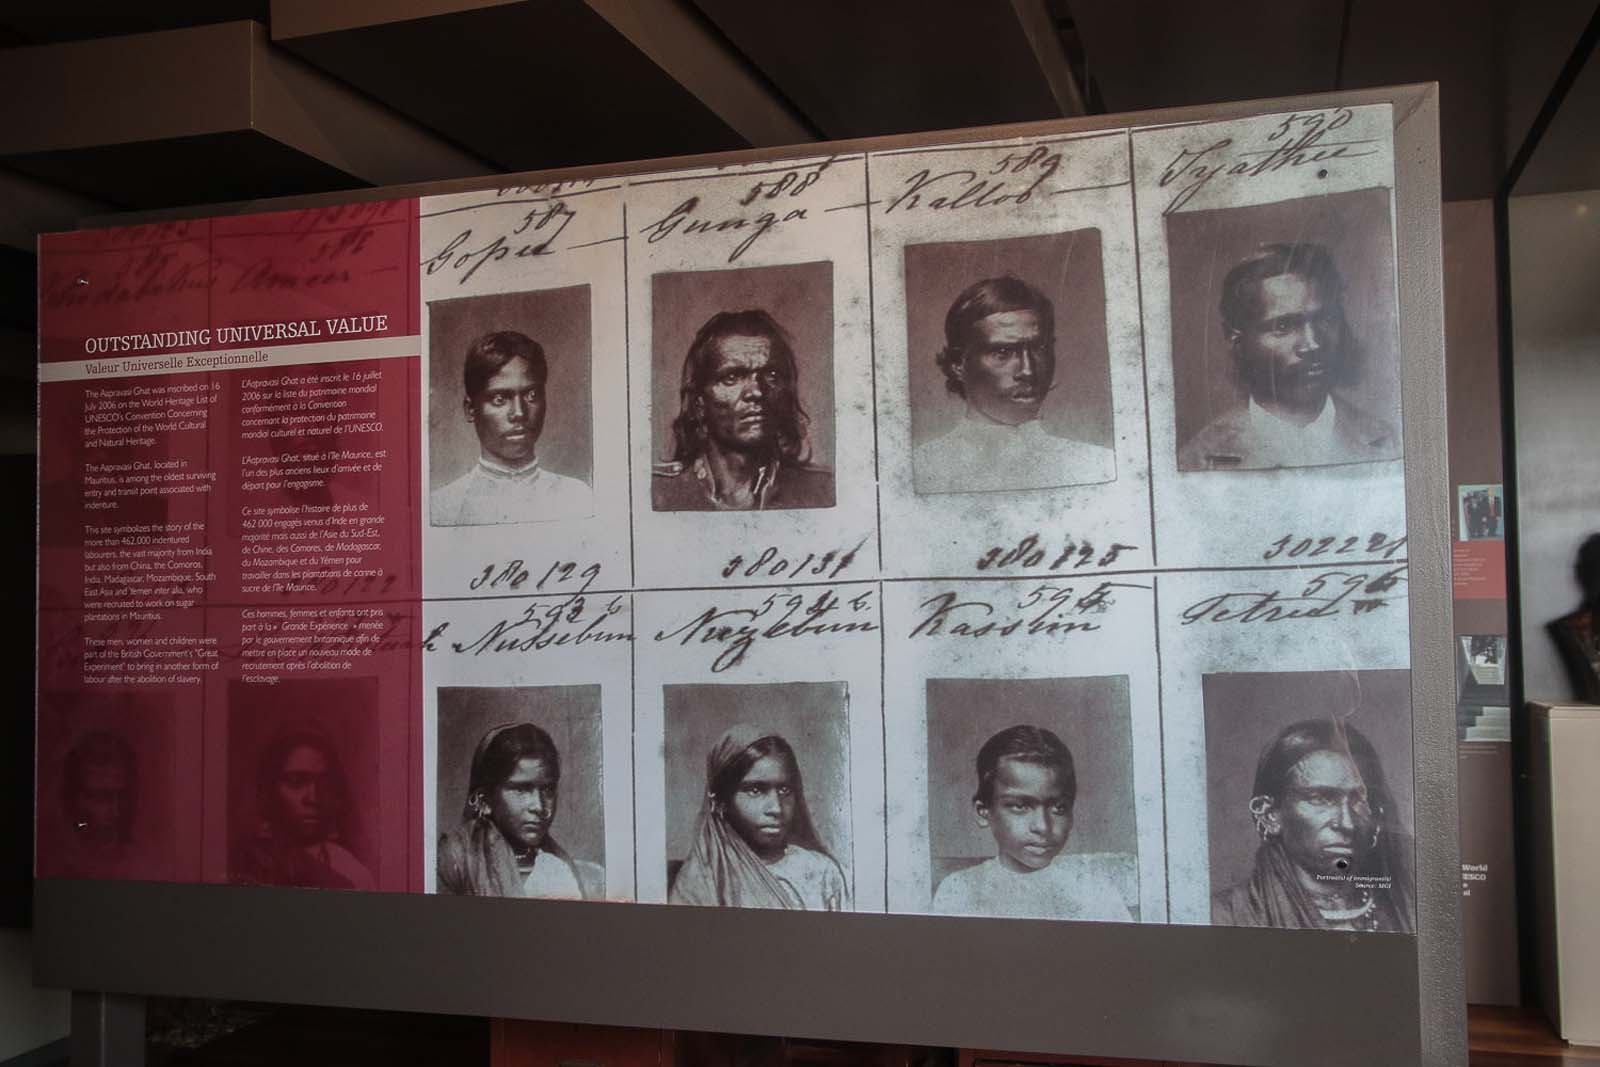 OUTSTANDING UNIVERSAL VALUE
Valeur Universelle Exceptionnelle
The Aapravasi Ghat was inscribed on 16
July 2006 on the World Heritage List of
UNESCO's Convention Concerning
the Protection of the World Cultural
and Natural Heritage.
The Aapravasi Ghat, located in
Mauritius, is among the oldest surviving
entry and transit point associated with
indenture.
This site symbolizes the story of the
more than 462,000 indentured
labourers, the vast majority from India
but also from China, the Comoros,
India, Madagascar, Mozambique, South
East Asia and Yemen inter alia, who
were recruited to work on sugar
plantations in Mauritius.
These men, women and children were
part of the British Government's "Great
Experiment" to bring in another form of
labour after the abolition of slavery.
L'Aapravasi Ghat a été inscrit le 16 juillet
2006 sur la liste du patrimoine mondial
conformément à la Convention
concernant la protection du patrimoine
mondial culturel et naturel de l'UNESCO.
L'Aapravasi Ghat, situé à l'île Maurice, est
l'un des plus anciens lieux d'arrivée et de
départ pour l'engagisme.
Ce site symbolise l'histoire de plus de
462 000 engagés venus d'Inde en grande
majorité mais aussi de l'Asie du Sud-Est,
de Chine, des Comores, de Madagascar,
du Mozambique et du Yémen pour
travailler dans les plantations de canne à
sucre de l'île Maurice.
Ces hommes, femmes et enfants ont pris
part à la « Grande Expérience » menée
par le gouvernement britannique afin de
mettre en place un nouveau mode de
recrutement après l'abolition de
l'esclavage.
587 588 589 590
Gopee Gunga Kalloo
380129 380131 380125
593
Nussebun Kasshim Tetree
Portrait(s) of immigrant(s)
Source: MGI
World